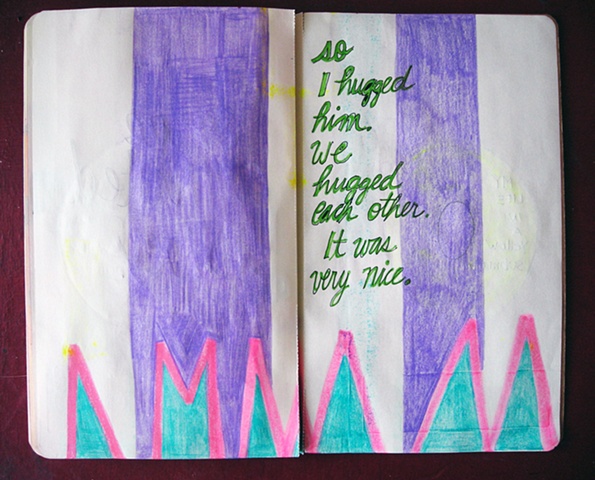 so
I hugged
him.
We
hugged
each other.
It was
very nice.